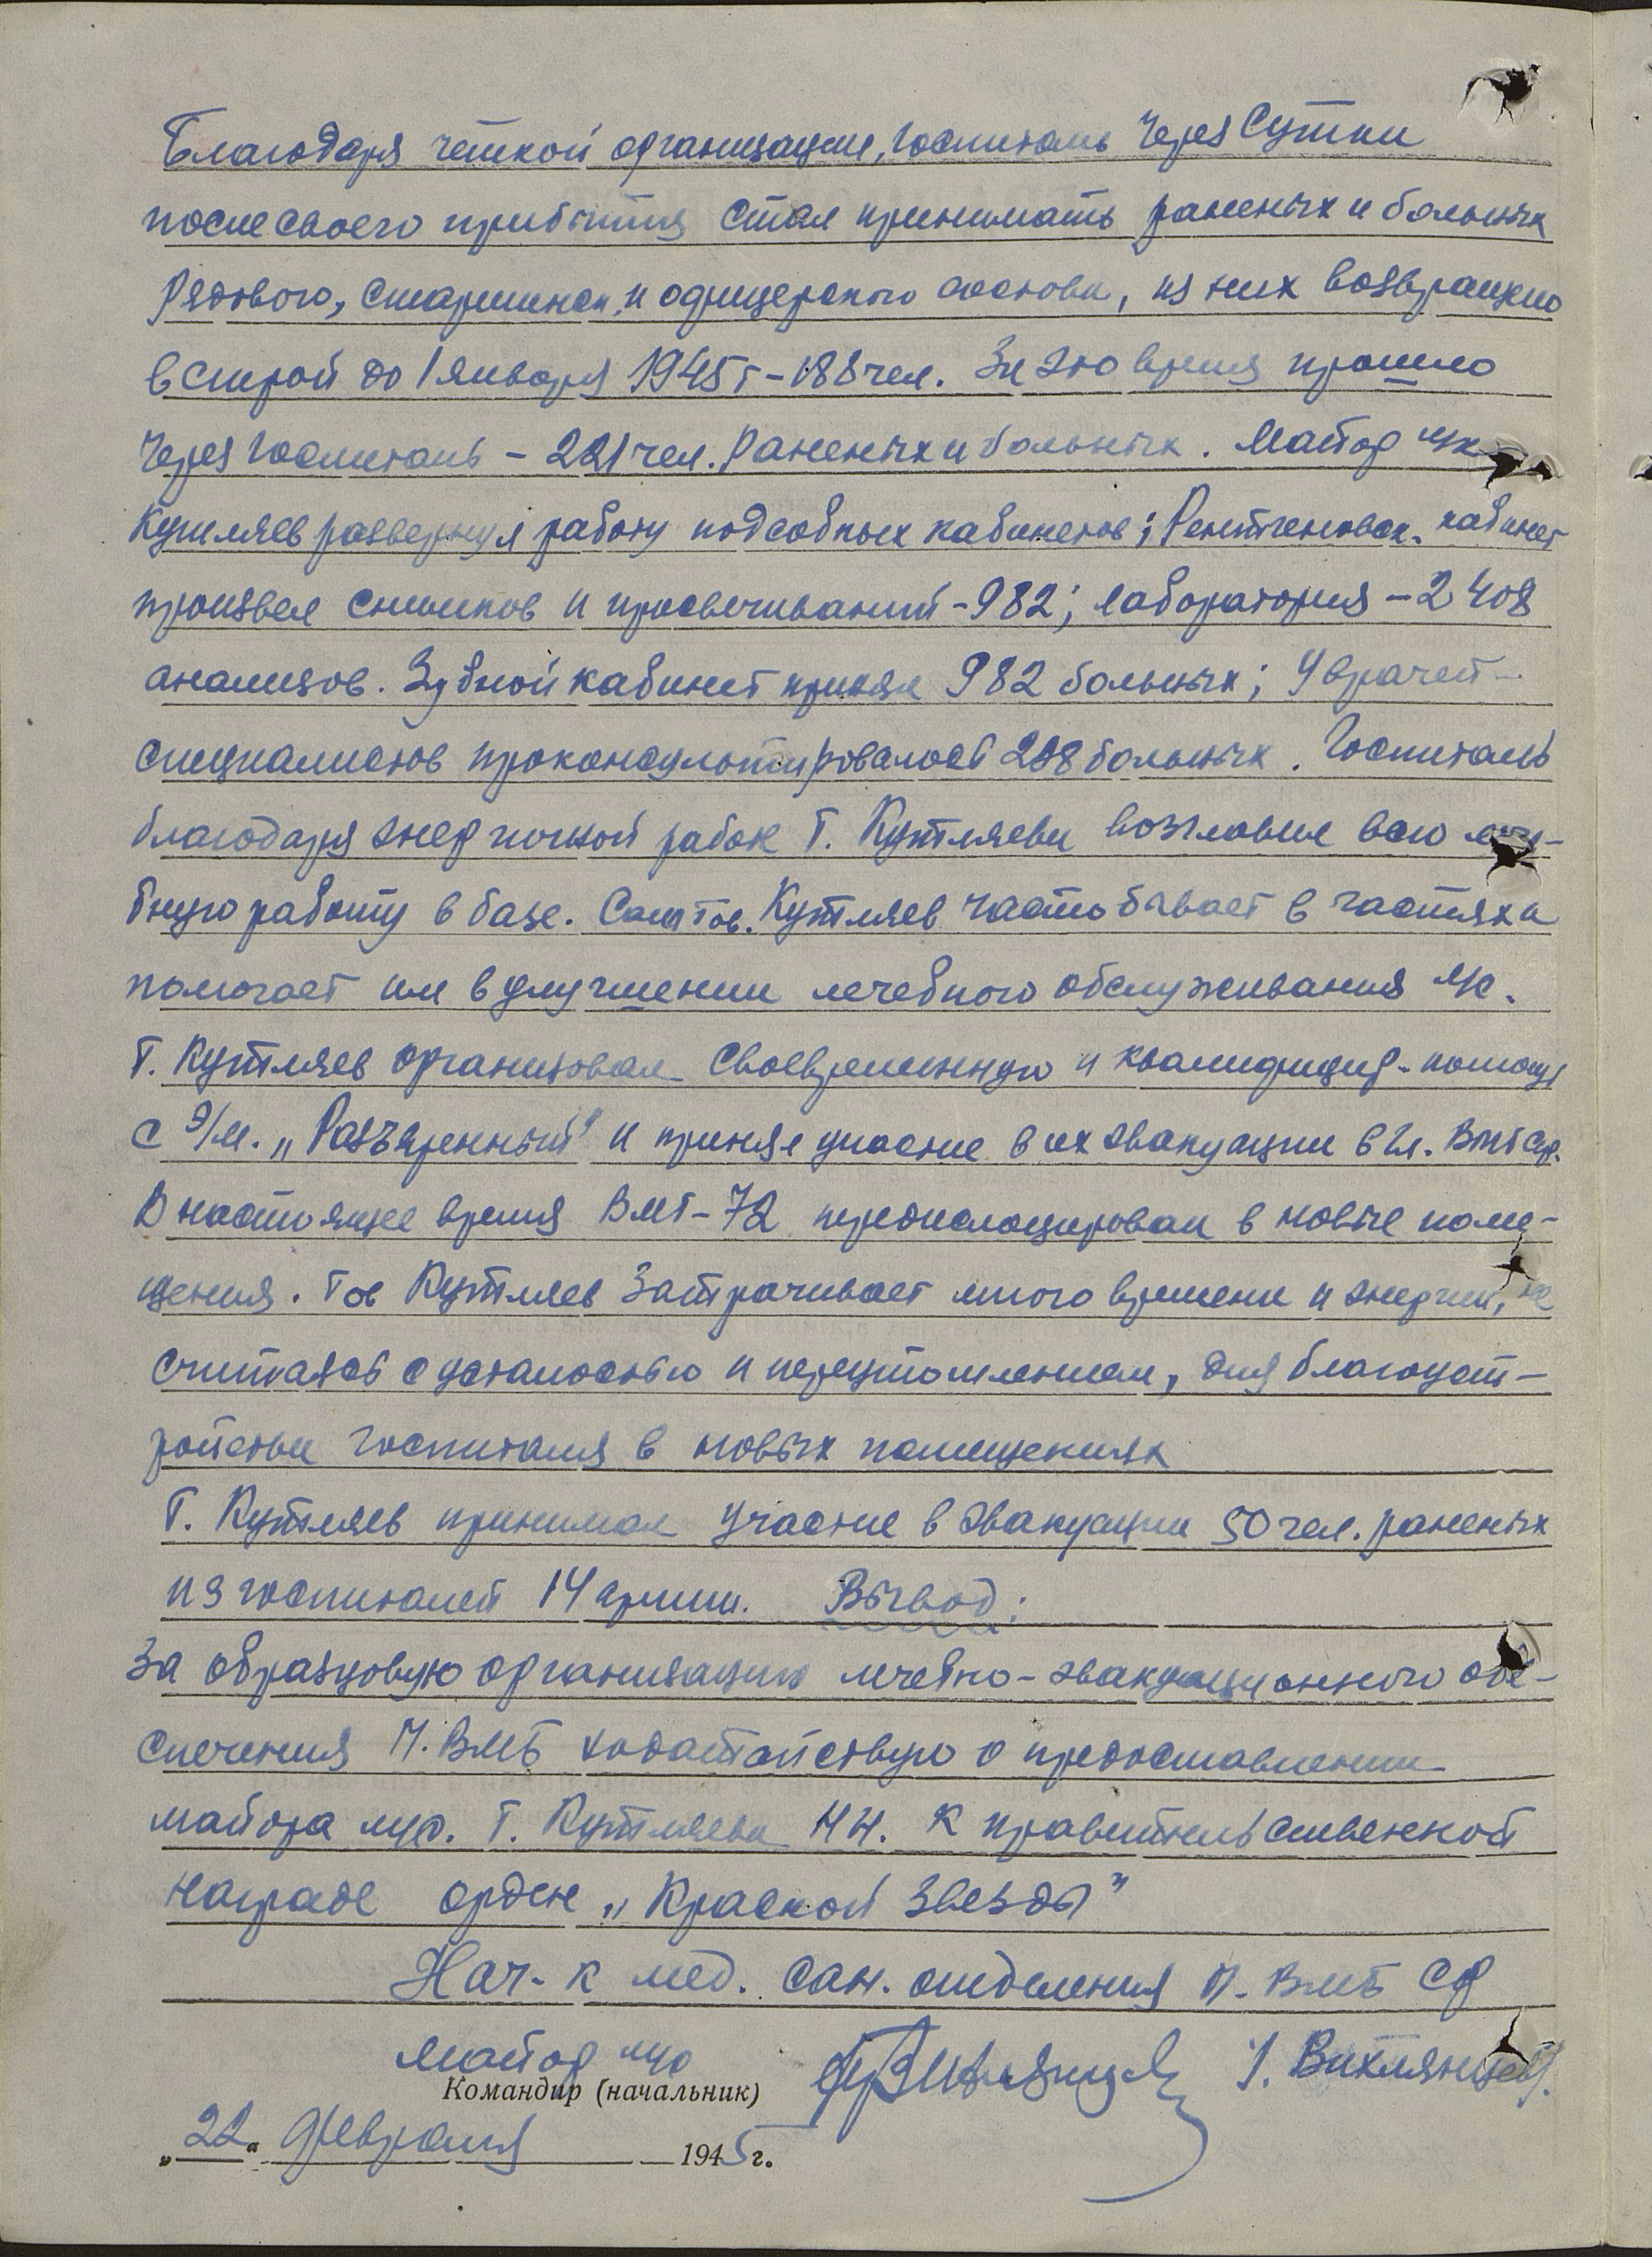 Благодаря четкой организации, госпиталь через сутки
после своего прибытия стал принимать раненых и больных
рядового, старшинск. и офицерского состава, из них возвращено
в строй до 1 января 1945 г – 188 чел. За это время прошло
через госпиталь – 221 чел. раненых и больных. Майор м/с
Кутляев развернул работу подсобных кабинетов; Рентгеновск. кабинет
произвел снимков и просвечиваний – 982; лаборатория – 2408
анализов. Зубной кабинет принял 982 больных; У врачей –
специалистов проконсультировалось 208 больных. Госпиталь
благодаря энергичной работе т. Кутляева возглавил всю леч-
бную работу в базе. Сам тов. Кутляев часто бывает в частях и
помогает им в улучшении лечебного обслуживания л/с.
Т. Кутляев организовал своевременную и квалифицир. помощь
с э/м. „Разъяренный" и принял участие в их эвакуации в Гл. ВМГ СФ.
В настоящее время ВМГ-72 передислоцирован в новые поме-
щения. Тов Кутляев затрачивает много времени и энергии, не
считаясь с усталостью и переутомлением, для благоуст-
ройства госпиталя в новых помещениях
Т. Кутляев принимал участие в эвакуации 50 чел. раненых
из госпиталей 14 армии. Вывод:
За образцовую организацию лечебно-эвакуационного обе-
спечения П. ВМБ ходатайствую о предоставлении
майора м/с. т. Кутляева Н Н. к правительственной
награде орден „Красной Звезды"
Нач-к мед. сан. отделения П. ВМБ СФ
майор м/с
Командир (начальник) /. Вихлянцев/.
„22" февраля 1945 г.